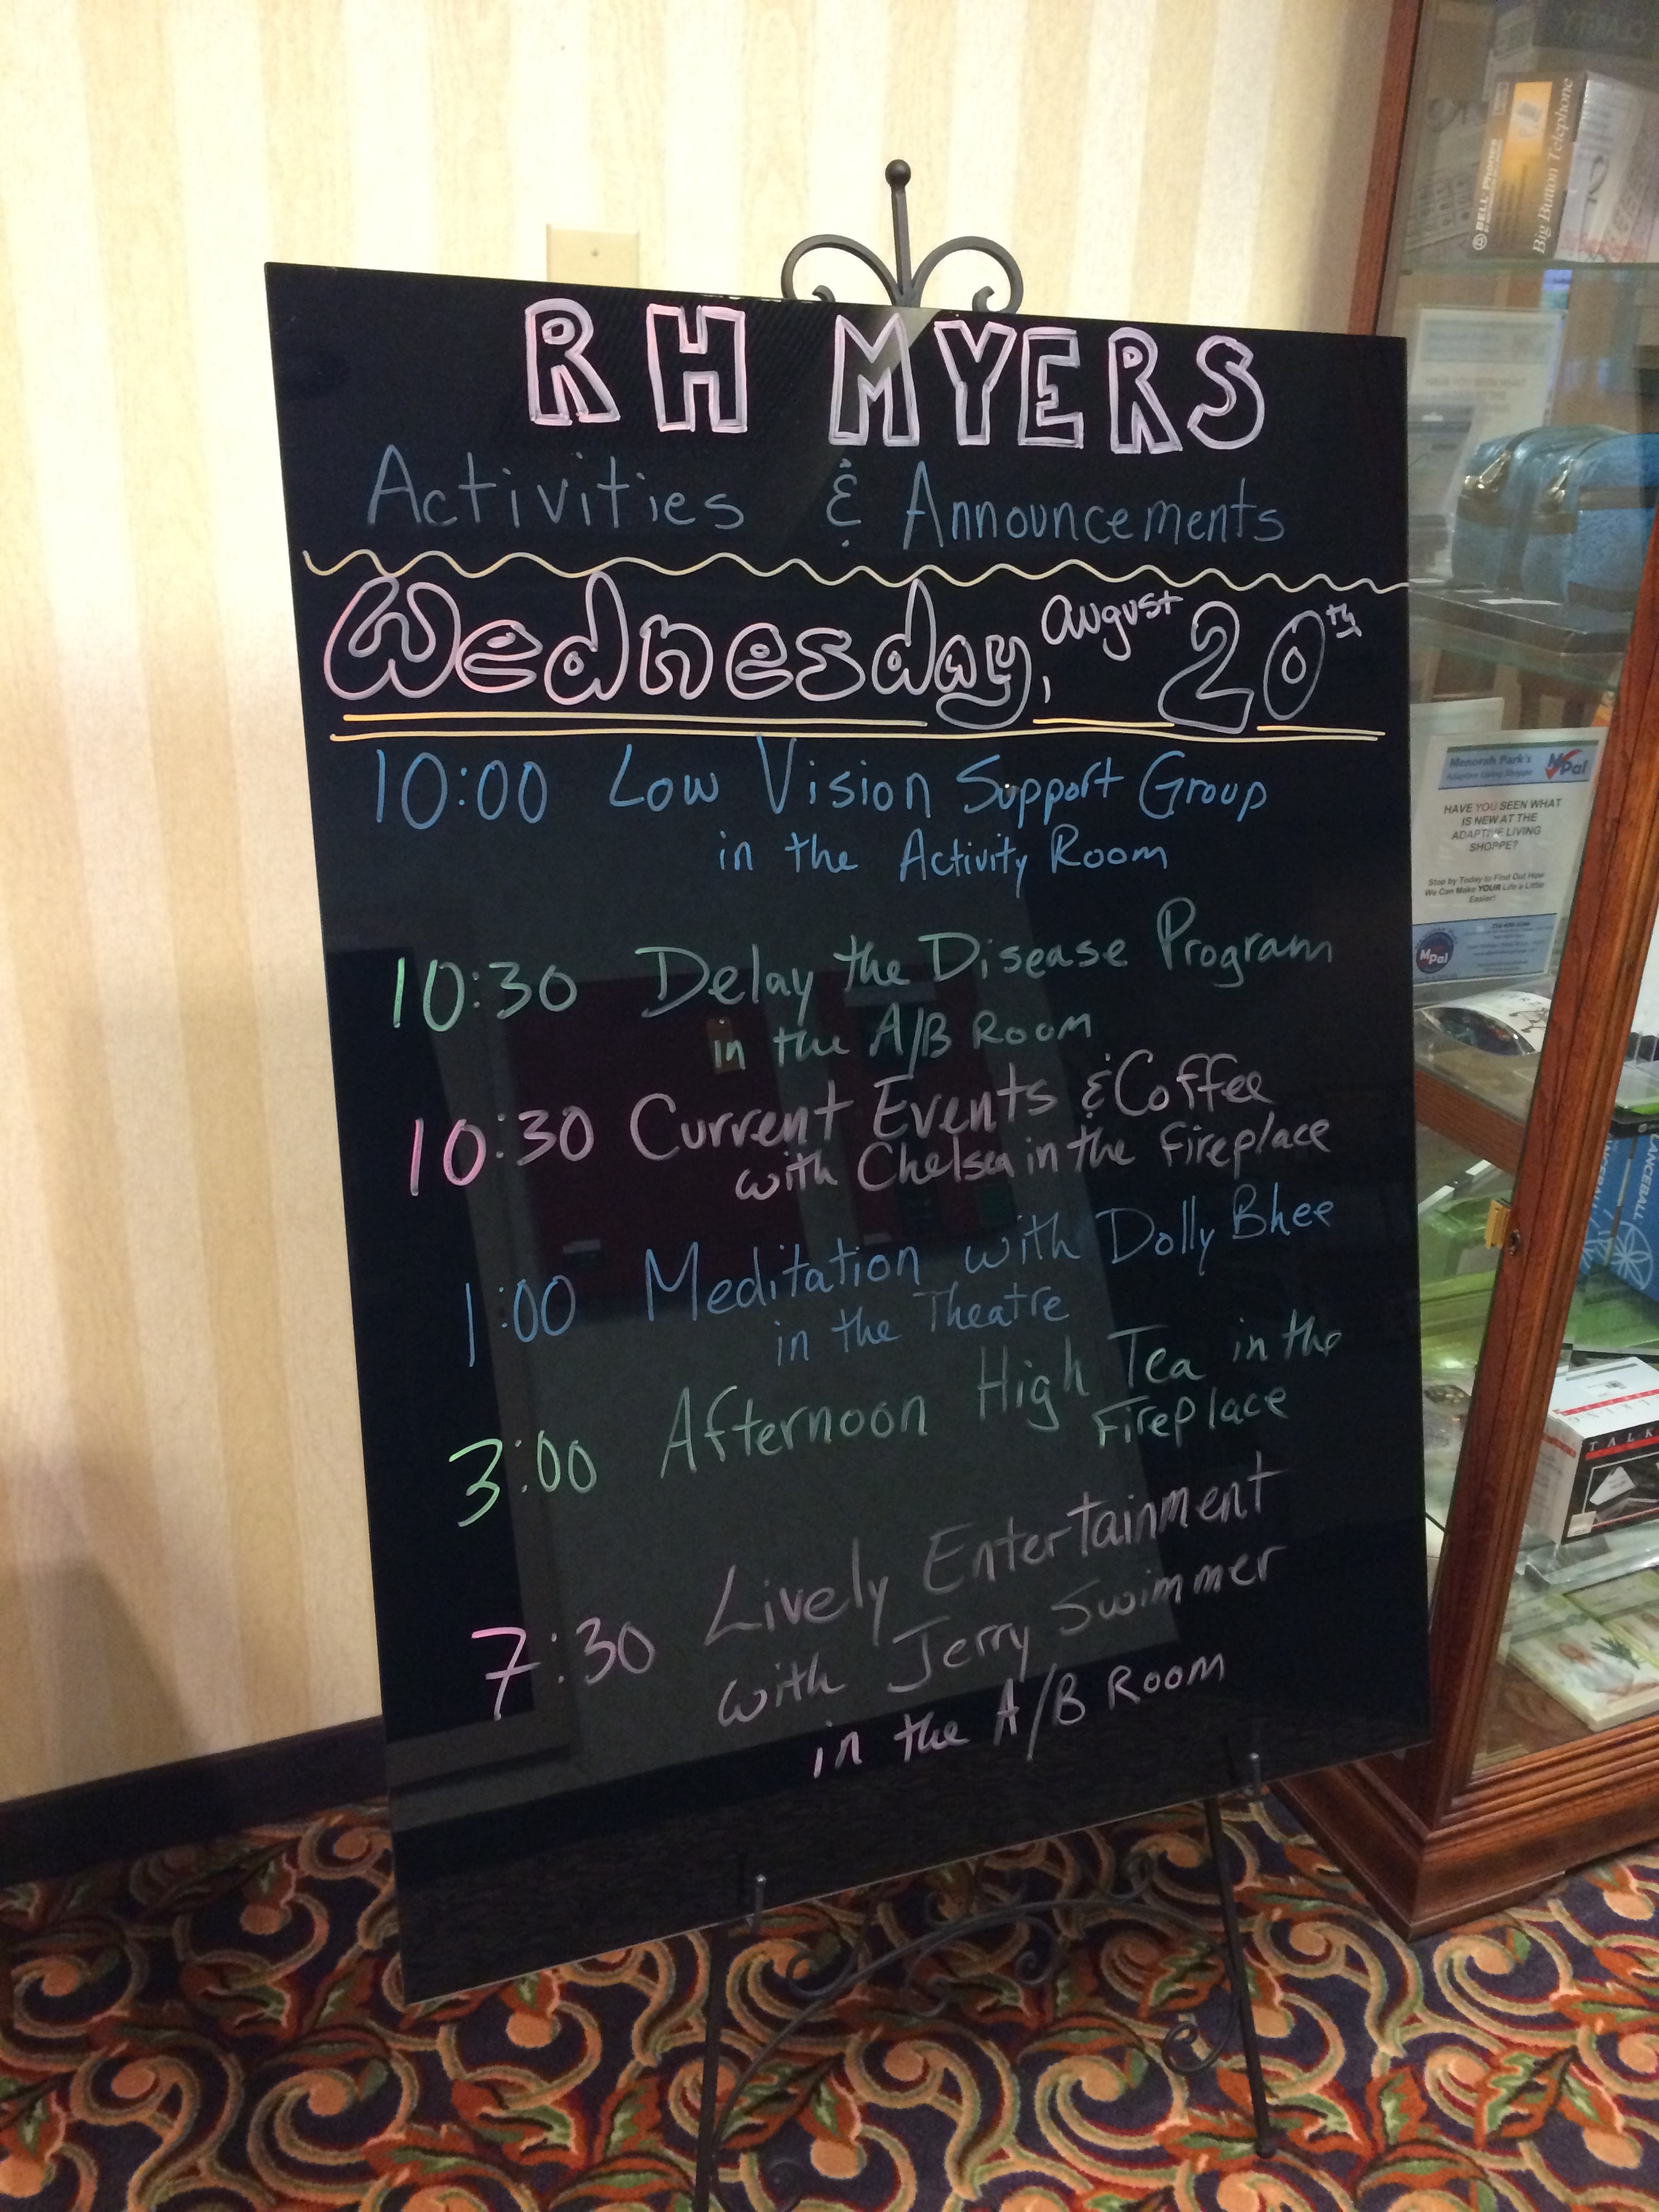 RH MYERS
Activities & Announcements
Wednesday, August 20th
10:00 Low Vision Support Group
in the Activity Room
10:30 Delay the Disease Program
in the A/B Room
10:30 Current Events & Coffee
with Chelsea in the Fireplace
1:00 Meditation with Dolly Bhee
in the Theatre
3:00 Afternoon High Tea in the
Fireplace
7:30 Lively Entertainment
with Jerry Swimmer
in the A/B Room
CLARITY
BELL Phones
Big Button Telephone
Menorah Park's
Adaptive Living Shoppe
MPal
HAVE YOU SEEN WHAT
IS NEW AT THE
ADAPTIVE LIVING
SHOPPE?
Stop by Today to Find Out How
We Can Make YOUR Life a Little
Easier!
MPal
TALK